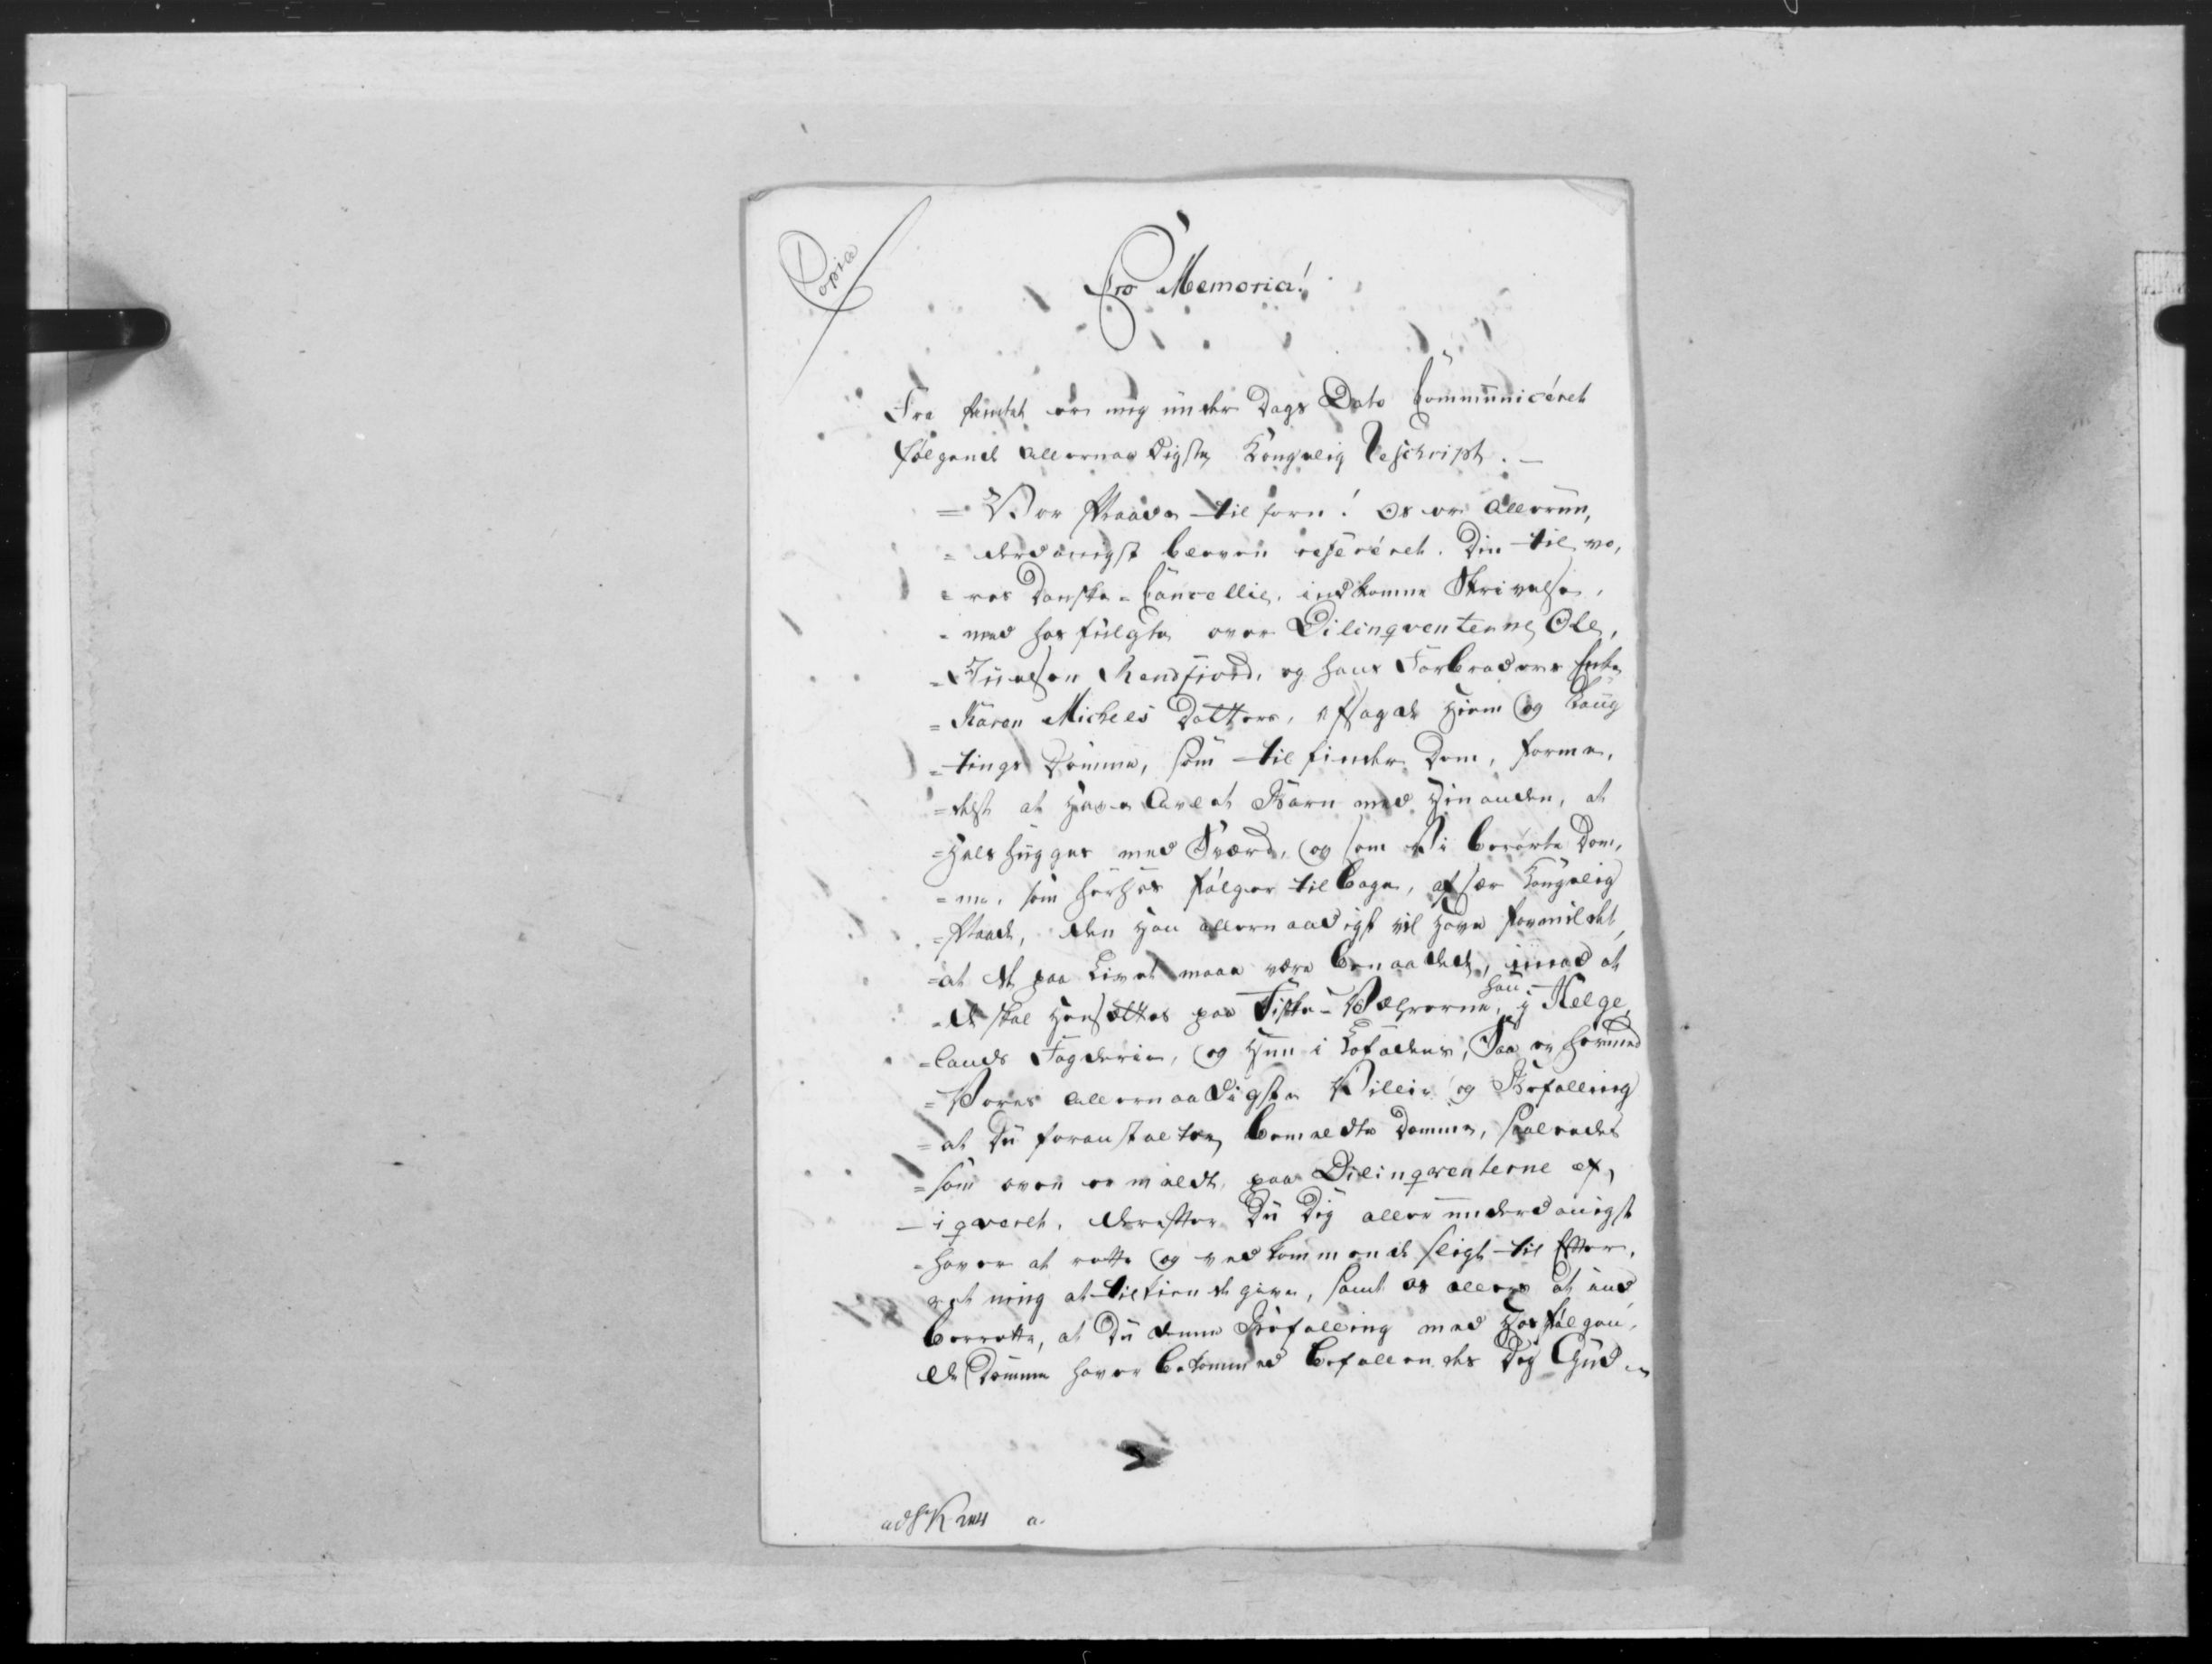 Copia
Pro Memoria!
Fra Amtet er mig under Dags Dato Communiceret
følgende allernaadigste Kongelig Rescript. –
= Vor Naade tilforn! Os er allerun,
= derdanigst bleven refereret. Din til vo,
= res Danske-Cancellie, indkomne Skrivelse,
= med hosfulgte over Dilinqventerne Ole,
= Iversen Rendfiord, og hans Farbroders Enke
= Karen Michels Datter, afsagde Hiem og Laug
= tings Domme, som tilfinder Dem, forme,
= delst at have avlet Barn med hinanden, at
= Halshugges med Sværd, og som Vi berørte Dom,
= me, som herhos følger tilbage, af sær Kongelig
= Naade, den Hau allernaadigst vil have formildet,
= at de paa Livet maae være benaadede, imod at
han
= de skal hensættes paa Fiske-Værerne, i Helge,
= lands Fogderie, og Hun i Lofoden, Saa er hermed
= Vores allernaadigste Villie og Befalling
= at Du foranstalter bemældte Domme, saaledes
= som oven er mældt, paa Dilinqventerne ex,
= iqveret. derefter Du Dig allerunderdanigst
= haver at rette og vedkommende sligt til Efter,
retning at tilkiendegive, samt os allerund
berette, at Du denne Befalling med hosfølgen,
de Domme haver bekommed Befallendes Dig Gud
a.